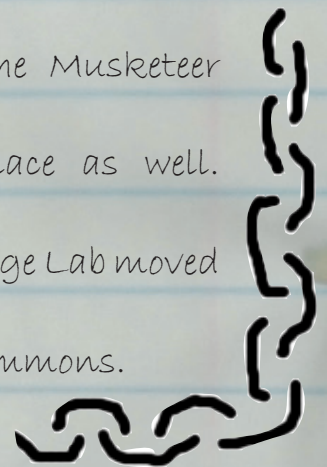 Musketeer
lace as well.
ge Lab moved
mmons.